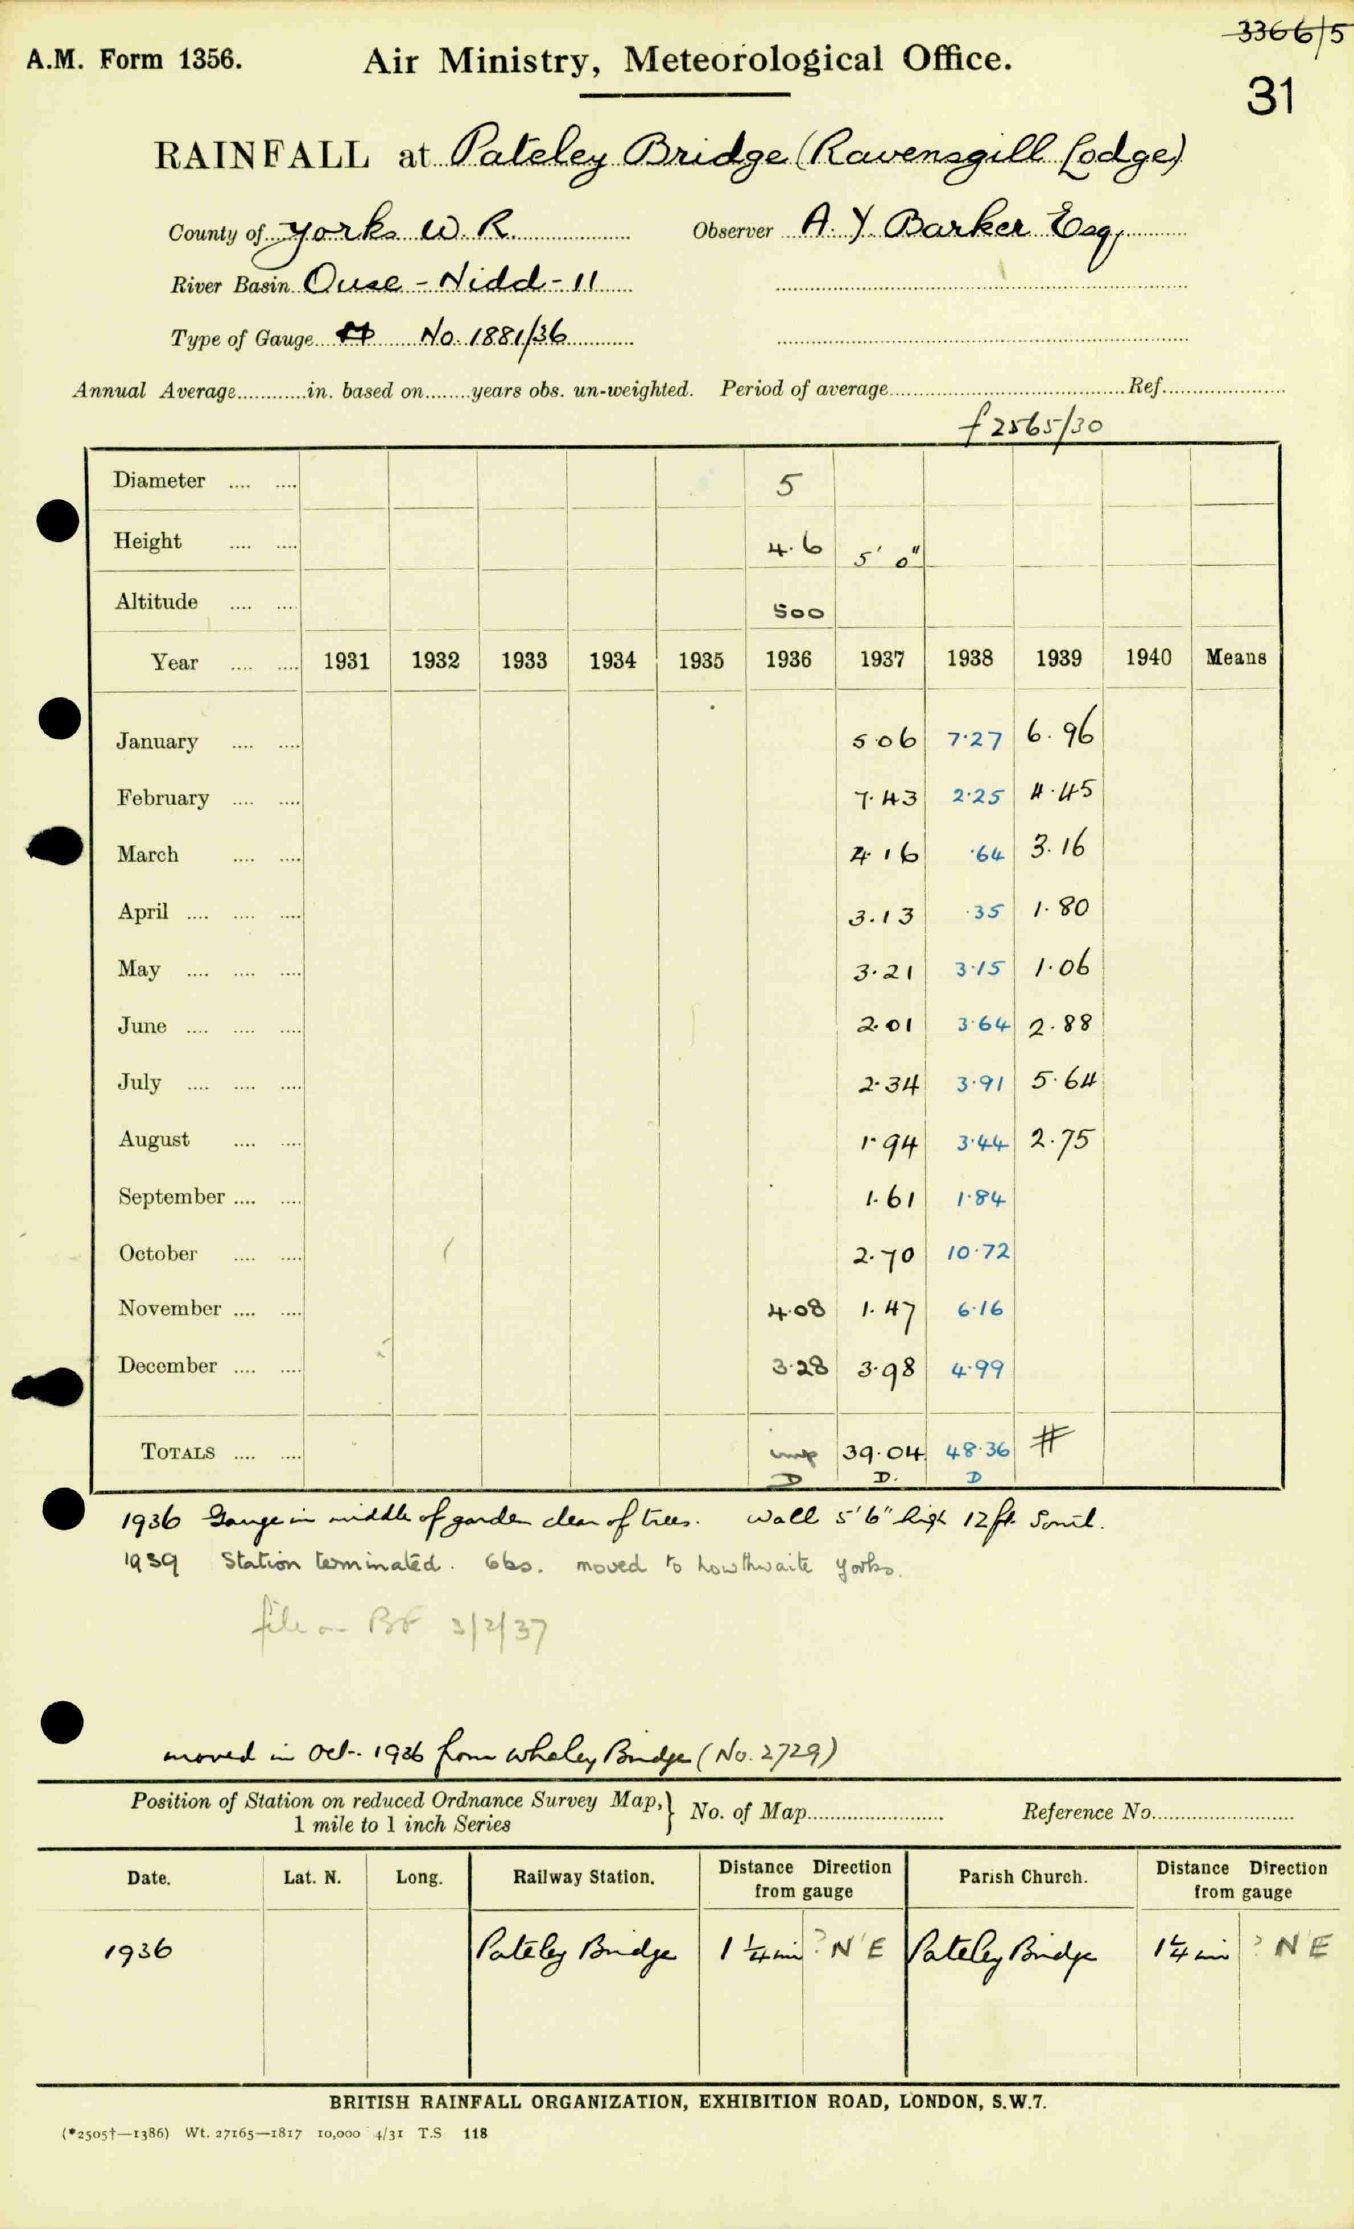 3366/5
A.M. Form 1356. Air Ministry, Meteorological Office.
31
RAINFALL at Pateley Bridge (Ravensgill Lodge)
County of Yorks W. R. Observer A. Y. Barker Esq,
River Basin Ouse - Nidd - 11
Type of Gauge No. 1881/36
Annual Average............in. based on........years obs. un-weighted. Period of average........ Ref........
f 2565/30
Diameter .... .... 5
Height .... .... 4.6 5' 0"
Altitude .... .... 500
Year .... .... 1931 1932 1933 1934 1935 1936 1937 1938 1939 1940 Means
January .... .... 5.06 7.27 6.96
February .... .... 7.43 2.25 4.45
March .... .... 4.16 .64 3.16
April .... .... .... 3.13 .35 1.80
May .... .... .... 3.21 3.15 1.06
June .... .... .... 2.01 3.64 2.88
July .... .... .... 2.34 3.91 5.64
August .... .... 1.94 3.44 2.75
September .... .... 1.61 1.84
October .... .... 2.70 10.72
November .... .... 4.08 1.47 6.16
December .... .... 3.28 3.98 4.99
TOTALS .... .... imp 39.04 48.36 #
D D. D
1936 Gauge in middle of garden clear of trees. Wall 5'6" high 12 ft.
1939 Station terminated. Obs. moved to Lowthwaite Yorks.
file on BF 3/2/37
moved in Oct. 1936 from Whaley Bridge (No. 2729)
Position of Station on reduced Ordnance Survey Map, } No. of Map........ Reference No........
1 mile to 1 inch Series
Date. Lat. N. Long. Railway Station. Distance Direction from gauge Parish Church. Distance Direction from gauge
1936 Pateley Bridge 1 1/4 mi ? N E Pateley Bridge 1 1/4 mi ? N E
BRITISH RAINFALL ORGANIZATION, EXHIBITION ROAD, LONDON, S.W.7.
(*2505†—1386) Wt. 27165—1817 10,000 4/31 T.S 118